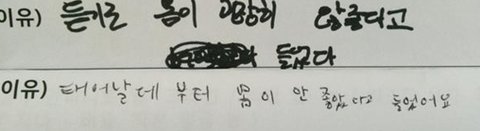 이유) 듣기로 몸이 굉장히 않좋다고
들었다
이유) 태어날데 부터 몸이 안 좋았다고 들었어요